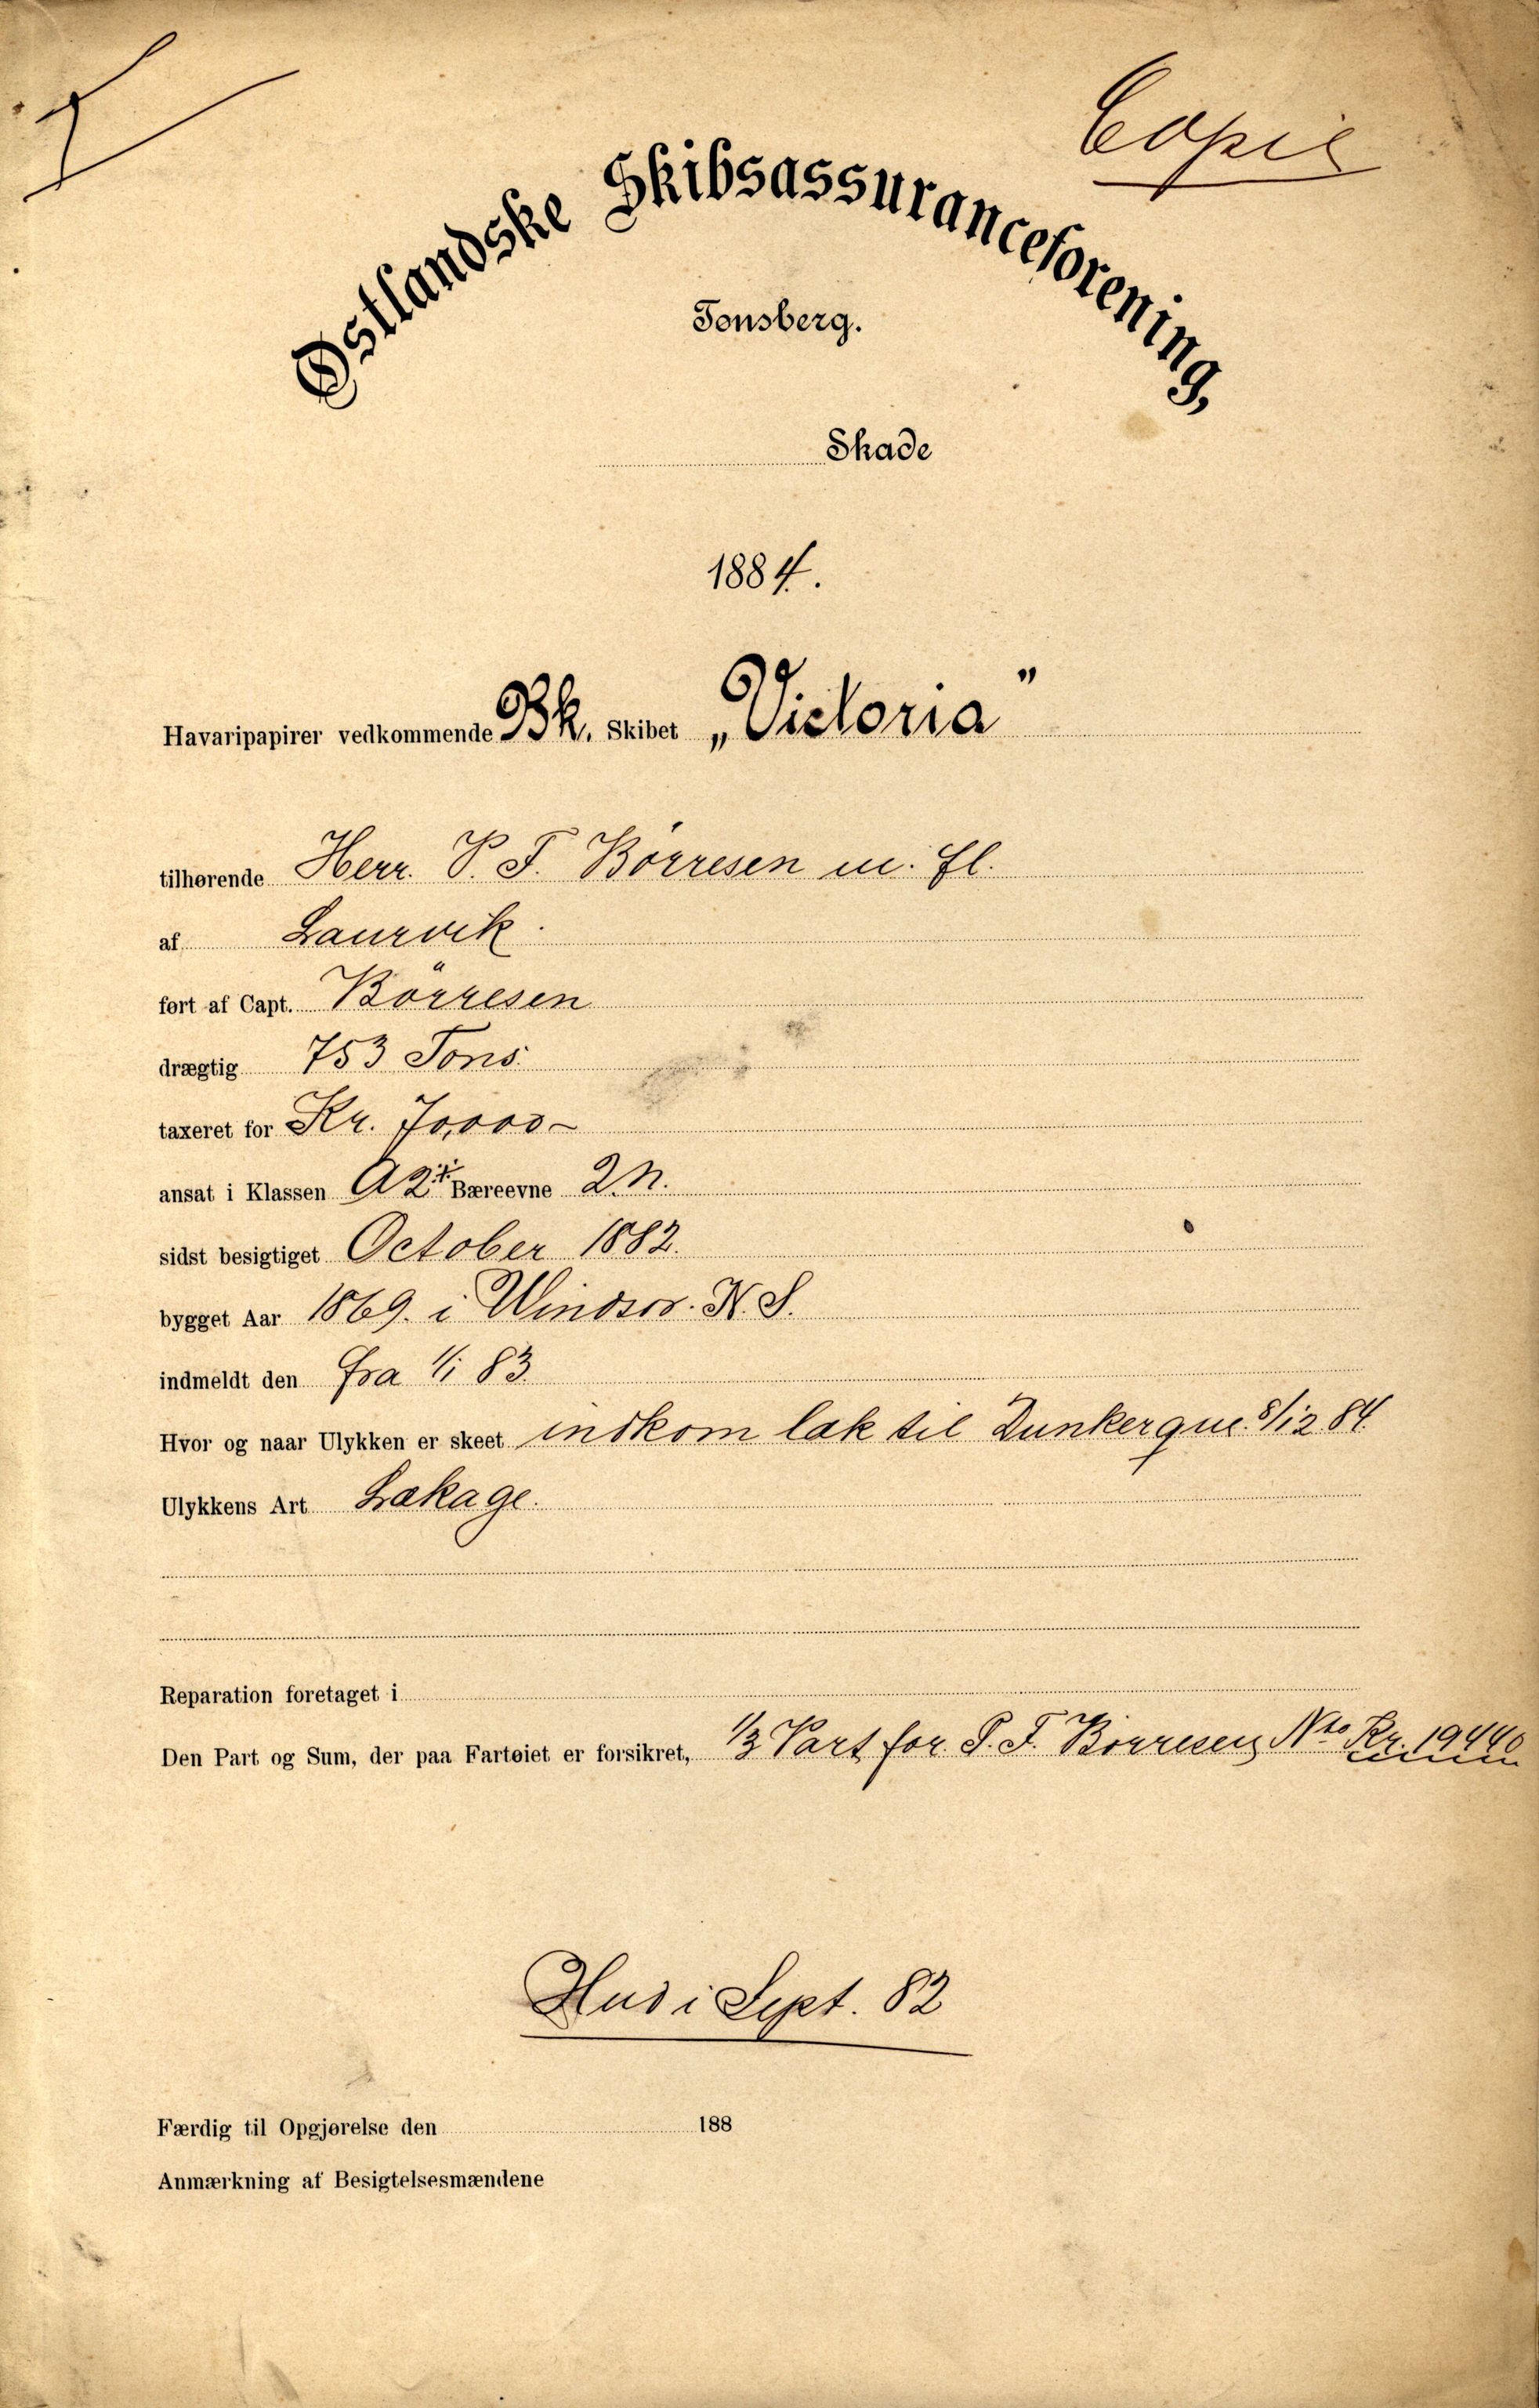 Copie
Østlandske Skibsassuranceforening,
Tønsberg.
Skade
1884.
Havaripapirer vedkommende Bk. Skibet „Victoria”
tilhørende Herr. P. F. Börresen m. fl.
af Laurvik.
ført af Capt. Börresen
drægtig 753 Tons.
taxeret for Kr. 70,000 -
ansat i Klassen A2 Bæreevne 2 N.
sidst besigtiget October 1882.
bygget Aar 1869. i Windsor. N. S.
indmeldt den fra 1/1 83
Hvor og naar Ulykken er skeet indkom læk til Dunkerque 8/12 84.
Ulykkens Art Lækage.
Reparation foretaget i
Den Part og Sum, der paa Fartøiet er forsikret, 1/3 Part for P. F. Börresen, Nto Kr. 19440
Hud i Sept. 82
Færdig til Opgjørelse den 188
Anmærkning af Besigtelsesmændene